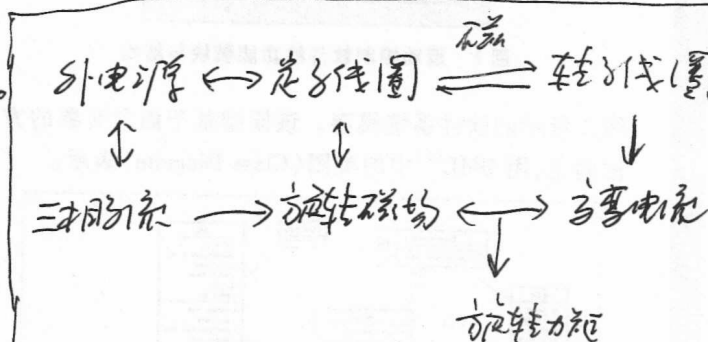 外电源 ↔ 定子线圈 ⇌ 转子线圈
三相形流 → 旋转磁场 ↔ 交变电流
旋转力矩